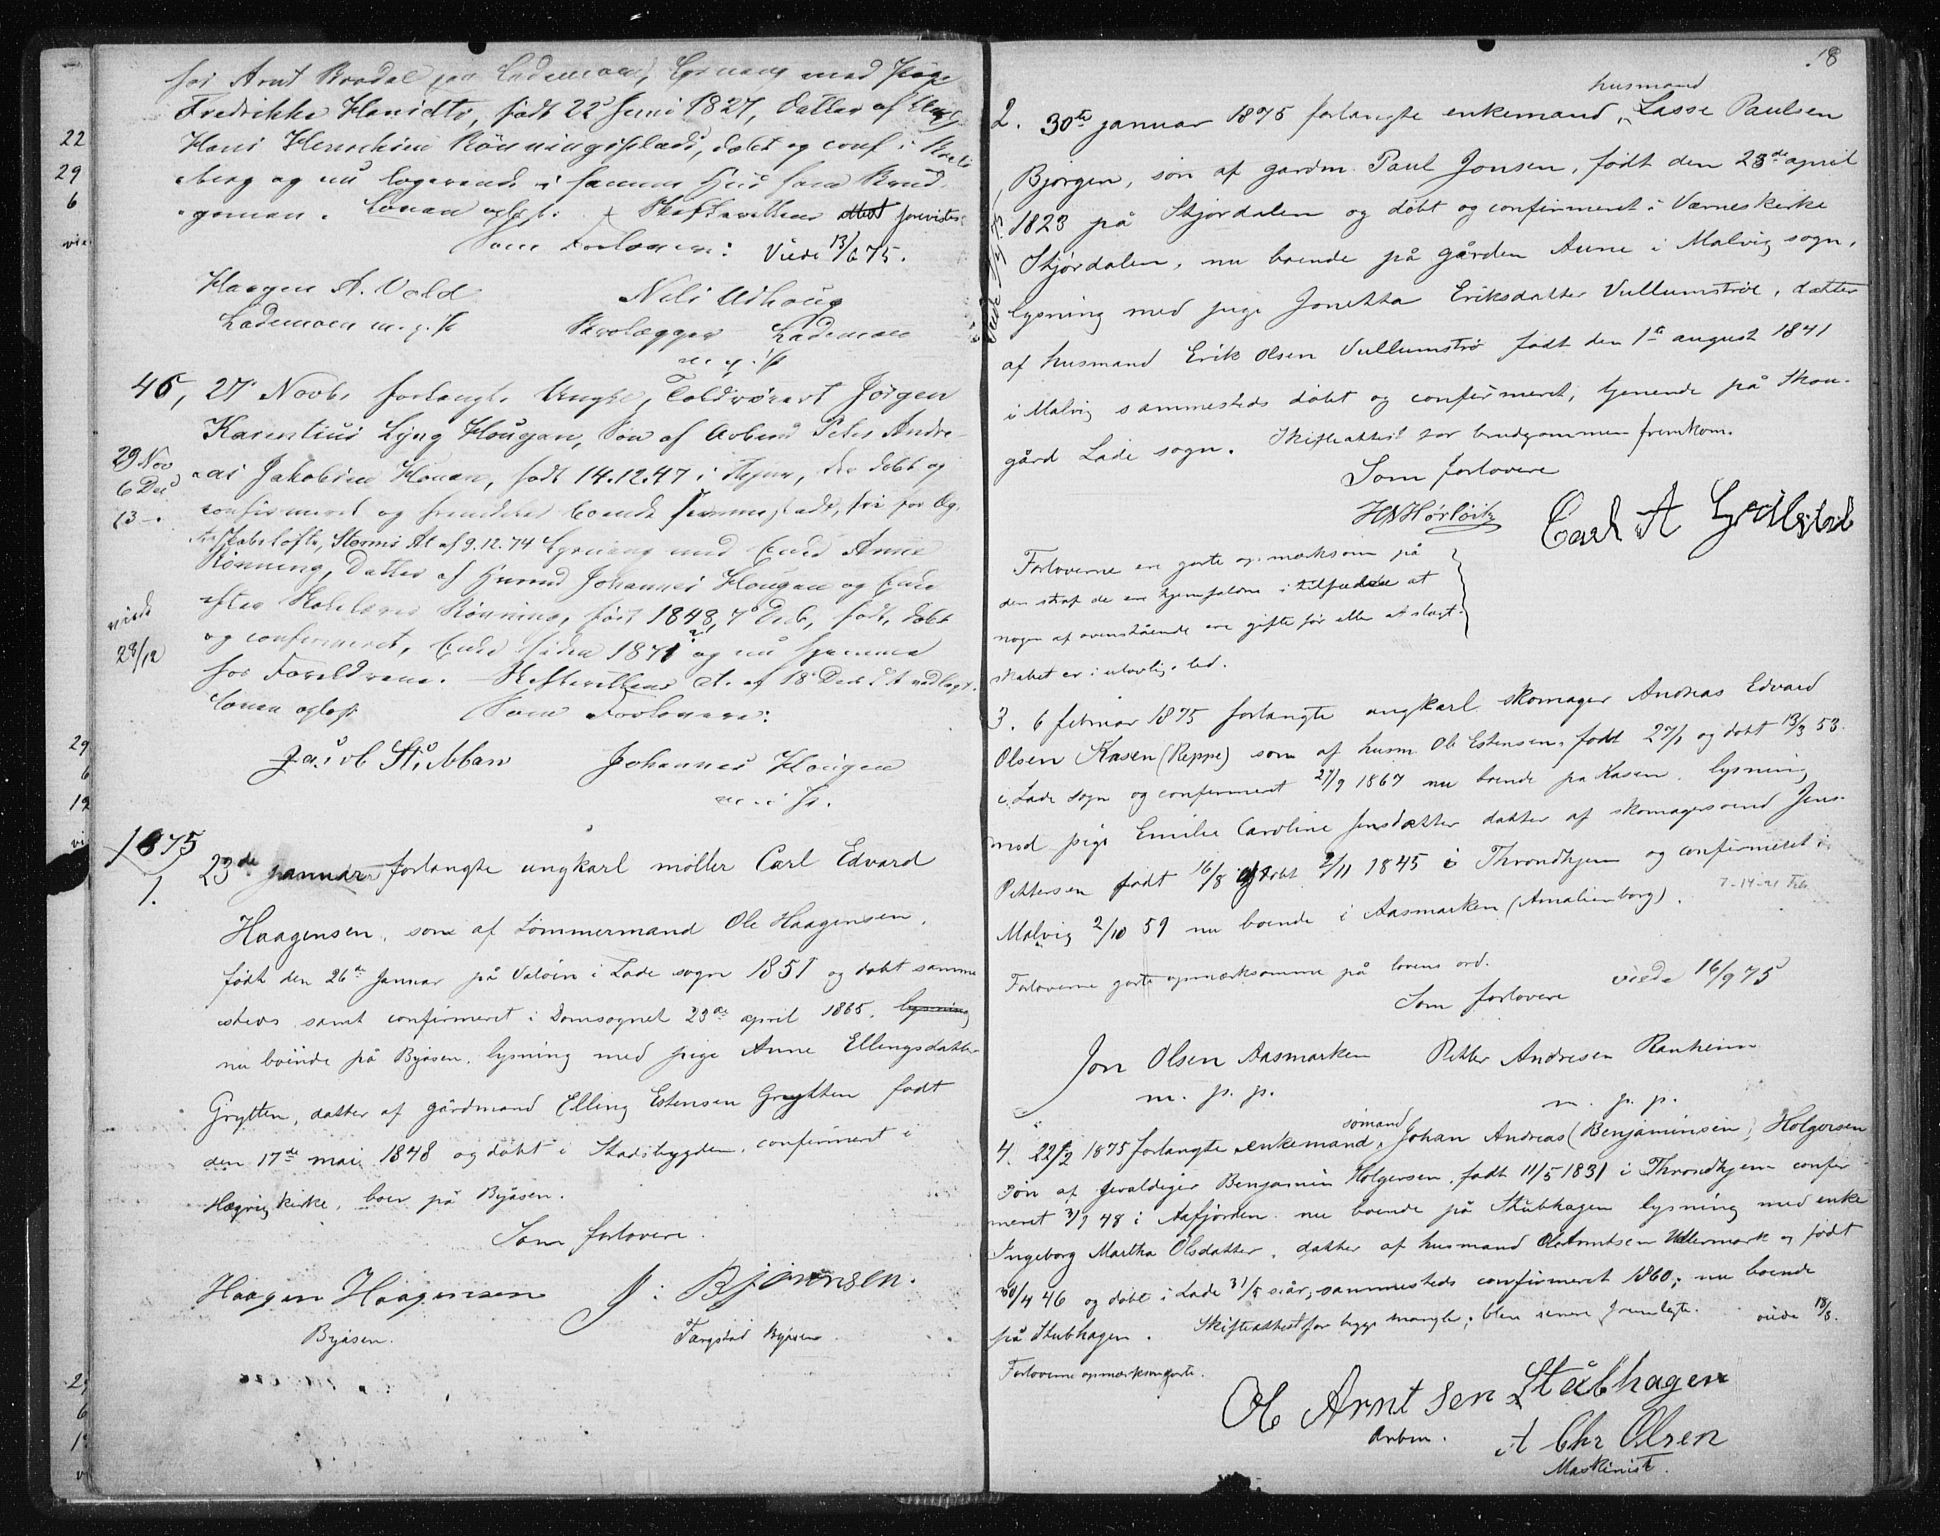 hos Arnt Rovdal paa Lademoen, Lysning med Pige
Fredrikke Hansdtr, født 22 Juni 1827, Datter af
Hans Rönningsplads, döbt og conf i
berg og nu logerende i samme Hus som Brud-
gommen. Skifterettens attest forevistes
Som Forlovere: Viede 13/6 75.
Haagen A. Vold
Nils Udhoug
Lademoen m. p. P
Brolægger Lademoen
m. p. P
22
29
6
46, 27 Novb. forlangte Ungk. Toldrorer Jörgen
Karentius Lyng Hougan, Sön af Arbmd Peter Andre-
as Jakobsen Hougan, født 14.12.47 i, der döbt og
confirmeret og fremdeles boende sammesteds, fri for Æg-
teskabsløfte, Lysning med Enke Anne
Rönning, Datter af Husmd Johannes Hougan og Enke
efter Rönning, født 1848, 7 Decb, født, döbt
og confirmeret, Enke siden 1871 og nu hjemme
hos Foreldrene. Skifterettens At. af 18 Decb d. A. vedlagt.
Loven oplæst Som Forlovere:
Jacob Stubban Johannes Hougen
29 Nov
6 Dec
13 -.
viede
28/12
1875
1.
23de januar forlangte ungkarl møller Carl Edvard
Haagensen, søn af Tømmermand Ole Haagensen,
født den 26de Januar på Valöen i Lade sogn 1851 og döbt samme
steds samt confirmeret i Domsognet 23de april 1865. lysning
nu boende på Byåsen, lysning med pige Anne Ellingsdatter
Grytten, datter af gårdmand Elling Estensen Grytten født
den 17de mai 1848 og döbt i Stadsbygden, confirmert i
kirke, boer på Byåsen.
Som forlovere.
Haagen Haagensen J. Bjørnsen.
Byåsen. Byåsen
18
husmand
2. 30te januar 1875 forlangte enkemand, Lasse Paulsen
Bjørgen, søn af gardm. Paul Jonsen, født den 23de april
1823 på Stjørdalen og döbt og confirmeret i Værneskirke
Stjørdalen, nu boende på gården Aune i Malvig sogn,
lysning med pige Jonetta Eriksdatter Vullumstrøe, datter
af husmand Erik Olsen Vullumstrø født den 1te august 1841
i Malvig sammesteds döbt og confirmeret, tjenende på Skou-
gård Lade sogn. Skifteattest for brudgommen fremkom.
Som forlovere
Carl A
Forloverne ere gjorte opmærksom på
den straf de ere hjemfaldne i tilfælde at
nogen af ovenstående ere gifte før eller at slægt-
skabet er i ulovlig led.
3. 6 februar 1875 forlangte ungkarl skomager Andreas Edvard
Olsen Kasen (Reppe) søn af husm. Ole Estensen, født 27/1 og döbt 13/3 53.
i Lade sogn og confirmeret 29/9 1867 nu boende på Kasen. lysning
med pige Emilie Caroline Jensdatter datter af skomagersvend Jens
Pettersen født 16/8 og döbt 2/11 1845 i Throndhjem og confirmeret i
Malvig 2/10 59 nu boende i Aasmarken (Amalienborg). 7-14-21 Feb
Forloverne gjorte opmærksomme på lovens ord.
Som forlovere viede 16/9 75
Jon Olsen Aasmarken Petter Andresen Ranheim
m. p. p. m. p. p.
sømand
4. 22/2 1875 forlangte enkemand, Johan Andreas (Benjaminsen) Holgersen
søn af gevaldiger Benjamin Holgersen, født 11/5 1831 i Throndhjem confir
meret 3/9 48 i Aafjorden. nu boende på Stubhagen lysning med enke
Ingeborg Martha Olsdatter, datter af husmand Ole Arntsen og født
30/4 46 og döbt i Lade 31/5 s. år, sammesteds confirmeret 1860; nu boende
på Stubhagen. Skifteattest for begge mangle; blev senere fremlagte. viede 18/3.
Forloverne opmærksomgjorte.
Ole Arntsen Stubhagen
Arbm.
A Chr Olsen
Maskinist.